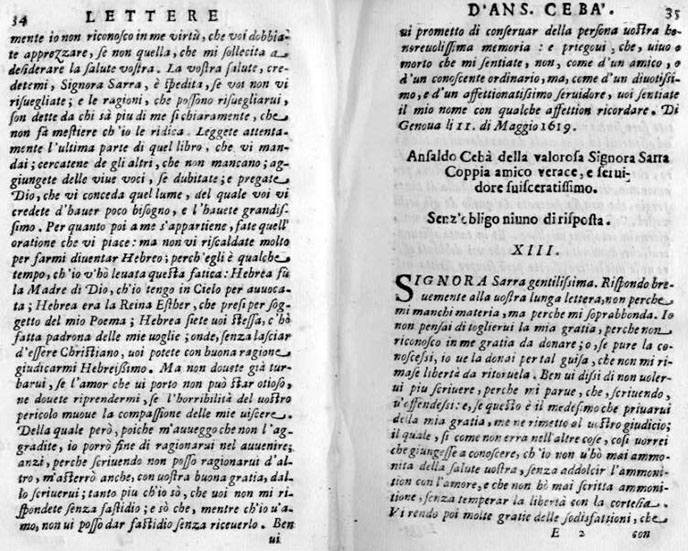 34 LETTERE
mente io non riconosco in me virtù, che voi dobbia-
te apprezzare, se non quella, che mi sollecita a
desiderare la salute vostra. La vostra salute, cre-
detemi, Signora Sarra, è spedita, se voi non vi
risuegliate; e le ragioni, che possono risuegliarui,
son dette da chi sà piu di me si chiaramente, che
non fà mestiere ch'io le ridica. Leggete attenta-
mente l'ultima parte di quel libro, che vi man-
dai; cercatene de gli altri, che non mancano; ag-
giungete delle viue voci, se dubitate; e pregate
Dio, che vi conceda quel lume, del quale voi vi
credete d'hauer poco bisogno, e l'hauete grandis-
simo. Per quanto poi a me s'appartiene, fate quell'
oratione che vi piace: ma non vi riscaldate molto
per farmi diuentar Hebreo; perch'egli è qualche
tempo, ch'io v'hò leuata questa fatica: Hebrea fù
la Madre di Dio, ch'io tengo in Cielo per auuoca-
ta; Hebrea era la Reina Esther, che presi per sog-
getto del mio Poema; Hebrea siete uoi stessa, c'hò
fatta padrona delle mie uoglie; onde, senza lasciar
d'essere Christiano, uoi potete con buona ragione
giudicarmi Hebreissimo. Ma non douete già tur-
barui, se l'amor che ui porto non può star otioso,
ne douete riprendermi, se l'horribilità del uostro
pericolo muoue la compassione delle mie uiscere.
Della quale però, poiche m'auueggo che non l'ag-
gradite, io porrò fine di ragionarui nel auuenire;
anzi, perche scriuendo non posso ragionarui d'al-
tro, m'asterrò anche, con uostra buona gratia, dal-
lo scriuerui; tanto piu ch'io sò, che uoi non mi ri-
spondete senza fastidio; e sò che, mentre ch'io u'a-
mo, non ui posso dar fastidio senza riceuerlo. Ben
ui
D'ANS. CEBA'. 35
ui prometto di conseruar della persona uostra ho-
noreuolissima memoria: e priegoui, che, uiuo o
morto che mi sentiate, non, come d'un amico, o
d'un conoscente ordinario, ma, come d'un diuotissi-
mo, e d'un affettionatissimo seruidore, uoi sentiate
il mio nome con qualche affettion ricordare. Di
Genoua li 11. di Maggio 1619.
Ansaldo Cebà della valorosa Signora Sarra
Coppia amico verace, e serui-
dore suisceratissimo.
Senz'obligo niuno di risposta.
XIII.
SIGNORA Sarra gentilissima. Rispondo bre-
uemente alla uostra lunga lettera, non perche
mi manchi materia, ma perche mi soprabbonda. Io
non pensai di toglierui la mia gratia, perche non
riconosco in me gratia da donare; o, se pure la co-
noscessi, io ue la donai per tal guisa, che non mi ri-
mase libertà da ritoruela. Ben ui dissi di non uoler-
ui piu scriuere, perche mi parue, che, scriuendo,
u'offendessi: e, se questo è il medesimo che priuarui
della mia gratia, me ne rimetto al uostro giudicio;
il quale, si come non erra nell'altre cose, cosi uorrei
che giungesse a conoscere, ch'io non u'hò mai ammo-
nita della salute uostra, senza addolcir l'ammoni-
tion con l'amore, e che non hò mai scritta ammoni-
tione, senza temperar la libertà con la cortesia.
Vi rendo poi molte gratie delle sodisfattioni, che
E 2 con